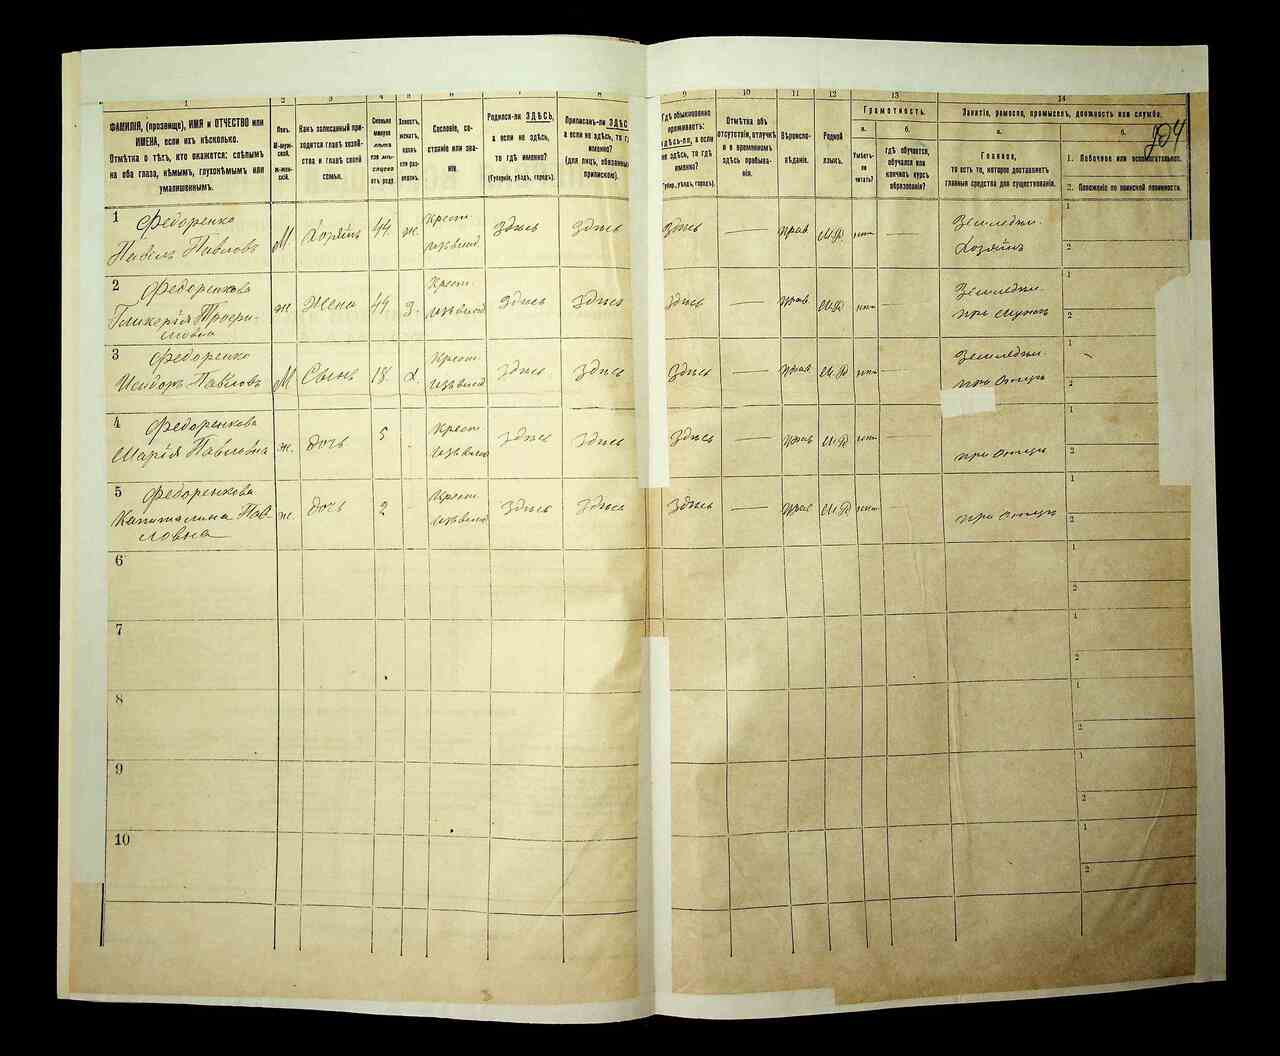 1 2 3 4 5 6 7 8 9 10 11 12 13 14
ФАМИЛІЯ, (прозвище), ИМЯ и ОТЧЕСТВО или
ИМЕНА, если ихъ нѣсколько.
Отмѣтка о тѣхъ, кто окажется: слѣпымъ
на оба глаза, нѣмымъ, глухонѣмымъ или
умалишеннымъ.
Полъ.
М-муж-
ской.
ж-жен-
скій.
Какъ записанный при-
ходится главѣ хозяй-
ства и главѣ своей
семьи.
Сколько
минуло
лѣтъ
или мѣ-
сяцевъ
отъ роду.
Холостъ,
женатъ,
вдовъ
или раз-
веденъ.
Сословіе, со-
стояніе или зва-
ніе.
Родился-ли ЗДѢСЬ,
а если не здѣсь,
то гдѣ именно?
(Губернія, уѣздъ, городъ).
Приписанъ-ли ЗДѢСЬ
а если не здѣсь, то гдѣ
именно?
(для лицъ, обязанныхъ
припискою).
Гдѣ обыкновенно
проживаетъ:
здѣсь-ли, а если
не здѣсь, то гдѣ
именно?
(Губер., уѣздъ, городъ).
Отмѣтка объ
отсутствіи, отлучкѣ
и о временномъ
здѣсь пребыва-
ніи.
Вѣроиспо-
вѣданіе.
Родной
языкъ.
Грамотность.
а. б.
Умѣетъ-
ли
читать?
гдѣ обучается,
обучался или
кончилъ курсъ
образованія?
Занятіе, ремесло, промыселъ, должность или служба.
а. б.
Главное,
то есть то, которое доставляетъ
главныя средства для существованія.
1. Побочное или вспомогательное.
2. Положеніе по воинской повинности.
204
1 Федоренко
Павелъ Павловъ М. Хозяинъ 44. ж. Крест. здѣсь здѣсь здѣсь — прав М.Р — Земледѣл. Хозяинъ 1 2
2 Федоренкова
Гликерія Трофи-
мовна ж Жена 44. з. Крест. здѣсь здѣсь здѣсь — прав М.Р — Земледѣл. при мужѣ 1 2
3 Федоренко
Исидоръ Павловъ М Сынъ 18. х. Крест. здѣсь здѣсь здѣсь — прав М.Р — Земледѣл. при отцѣ 1 2
4 Федоренкова
Марія Павловна ж. дочь 5 Крест здѣсь здѣсь здѣсь — прав М.Р — при отцѣ 1 2
5 Федоренкова
Капиталина Пав
ловна ж. дочь 2 Крест. здѣсь здѣсь здѣсь — прав М.Р — при отцѣ 1 2
6 1 2
7 1 2
8 1 2
9 1 2
10 1 2